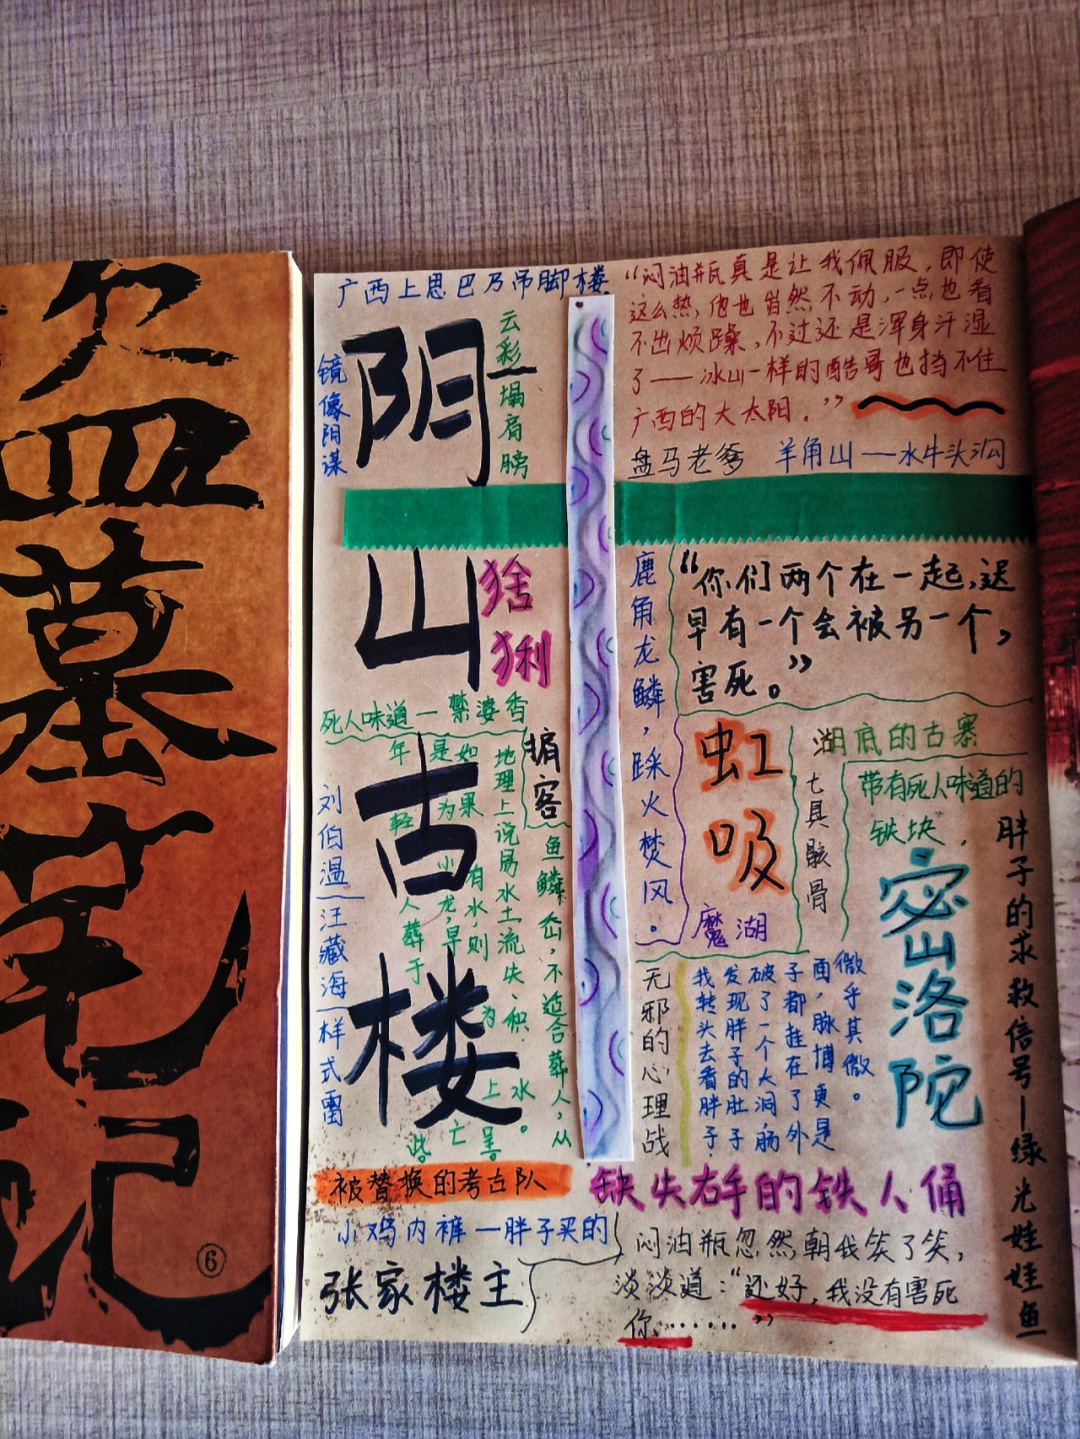 盗墓笔记
⑥
广西上思巴乃吊脚楼
阴山古楼
镜像阴谋
云彩—塌肩膀
猞猁
死人味道—禁婆香
掮客
刘伯温—汪藏海—样式雷
鱼鳞岙,不适合葬人,从
地理上说易水土流失、积水。
如果有水,则为上
是为小龙,早亡
年轻人葬于
些。
被替换的考古队
小鸡内裤—胖子买的
张家楼主
“闷油瓶真是让我佩服,即使
这么热,他也当然不动,一点也看
不出烦躁,不过还是浑身汗湿
了——冰山一样的酷哥也挡不住
广西的大太阳.”
盘马老爹 羊角山—水牛头沟
鹿角龙鳞,踩火焚风.
“你们两个在一起,迟
早有一个会被另一个
害死。”
虹吸
魔湖
湖底的古寨
七具骸骨
带有死人味道的
铁块.
密洛陀
胖子的求救信号—绿光娃娃鱼
无邪的心理战
我转头去看胖子,
发现胖子的肚子
破了一个大洞,肠
子都挂在了外
面,脉搏更是
微乎其微。
缺失右手的铁人俑
闷油瓶忽然朝我笑了笑,
淡淡道:“还好,我没有害死
你……”